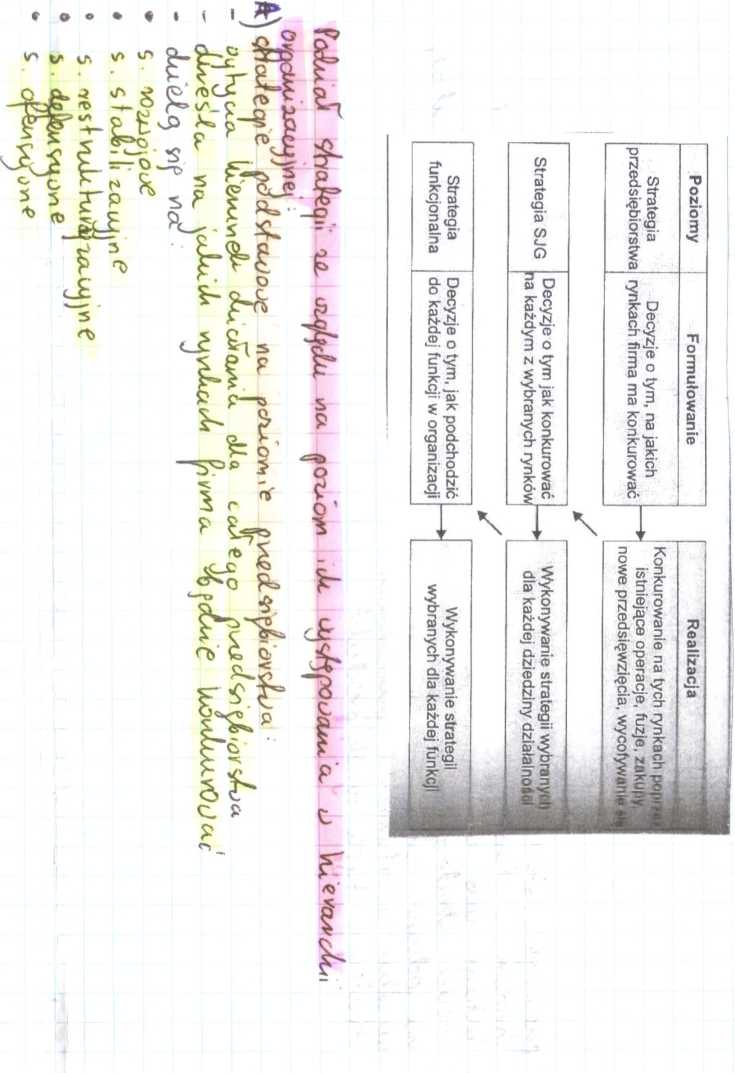 Poziomy Formułowanie Realizacja
Strategia przedsiębiorstwa
Decyzje o tym, na jakich
rynkach firma ma konkurować
Konkurowanie na tych rynkach poprzez
istniejące operacje, fuzje, zakupy,
nowe przedsięwzięcia, wycofywanie się
Strategia SJG
Decyzje o tym jak konkurować
na każdym z wybranych rynków
Wykonywanie strategii wybranych
dla każdej dziedziny działalności
Strategia
funkcjonalna
Decyzje o tym, jak podchodzić
do każdej funkcji w organizacji
Wykonywanie strategii
wybranych dla każdej funkcji
Podział strategii ze względu na poziom ich występowania w hierarchii
organizacyjnej:
A) strategie podstawowe na poziomie przedsiębiorstwa:
- wytycza kierunek działania dla całego przedsiębiorstwa
- określa na jakich rynkach firma będzie konkurować
- dzielą się na:
• s. rozwojowe
• s. stabilizacyjne
• s. restrukturyzacyjne
• s. defensywne
• s. ofensywne